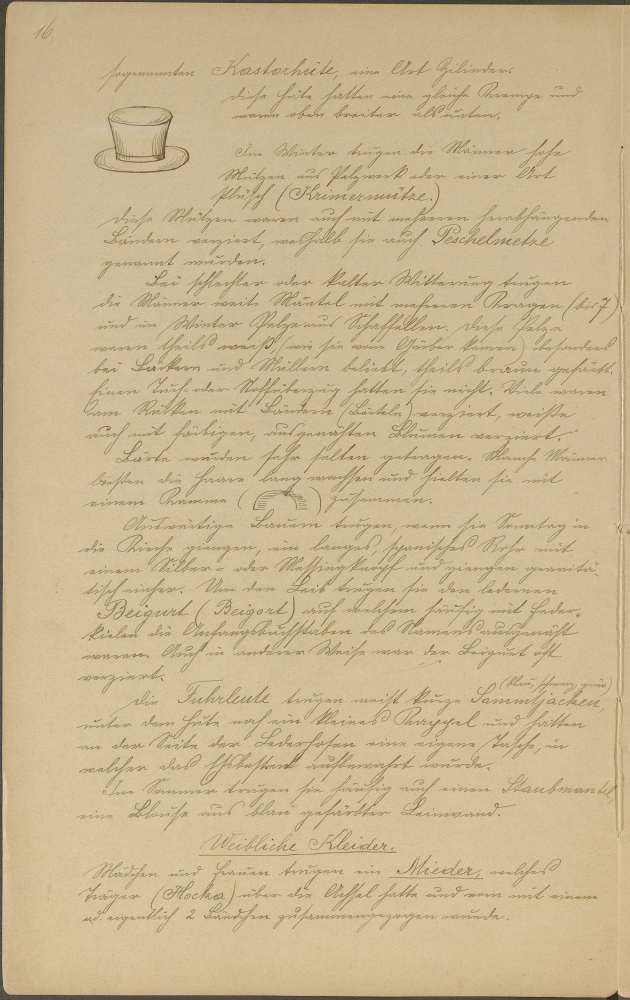 16.
sogenannten Kastorhüte, eine Art Zilinder.
Diese Hüte hatten eine gleiche Krempe und
waren oben breiter als unten.
Im Winter trugen die Männer hohe
Mützen aus Pelzwerk oder einer Art
Plüsch (Krimermütze.)
Diese Mützen waren auch mit mehreren herabhängenden
Bändern verziert, weshalb sie auch Peschelmetze
genannt wurden.
Bei schlechter oder kalter Witterung trugen
die Männer weite Mäntel mit mehreren Kragen (bis 7)
und im Winter Pelze aus Schaffellen. Diese Pelze
waren theils weiß, (wie sie vom Gärber kamen) besonders
bei Bäckern und Müllern beliebt, theils braun gefärbt.
Einen Tuch- oder Stoffüberzug hatten sie nicht. Viele waren
am Rücken mit Bändern verziert,
auch mit färbigen, ausgenähten Blumen verziert.
Bärte wurden sehr selten getragen. Manche Männer
ließen die Haare lang wachsen und hielten sie mit
einem Kamme ( ) zusammen.
Auswärtige Bauern trugen, wenn sie Sonntag in
die Kirche giengen, ein langes, spanisches Rohr mit
einem Silber- oder Messingknopf und giengen gravitä-
tisch einher. Um den Leib trugen sie den ledernen
Beigurt (Beigort) auf welchem häufig mit Feder-
kielen die Anfangsbuchstaben des Namens ausgenäht
waren. Auch in anderer Weise war der Beigurt oft
verziert.
(blau, schwarz, grün)
Die Fuhrleute trugen meist kurze Sammtjacken,
unter dem Hute noch ein kleines Kappel und hatten
an der Seite der Lederhosen eine eigene Tasche, in
welcher das Eßbesteck aufbewahrt wurde.
Im Sommer trugen sie häufig auch einen Staubmantel,
eine Blouse aus blau gefärbter Leinwand.
Weibliche Kleider.
Mädchen und Frauen trugen ein Mieder, welches
Träger (Hocka) über die Achsel hatte und vorn mit einem
od. eigentlich 2 Bändchen zusammengezogen wurde.